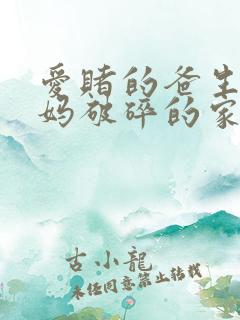 爱赌的爸生
妈破碎的家
古小龍
未经同意禁止转载